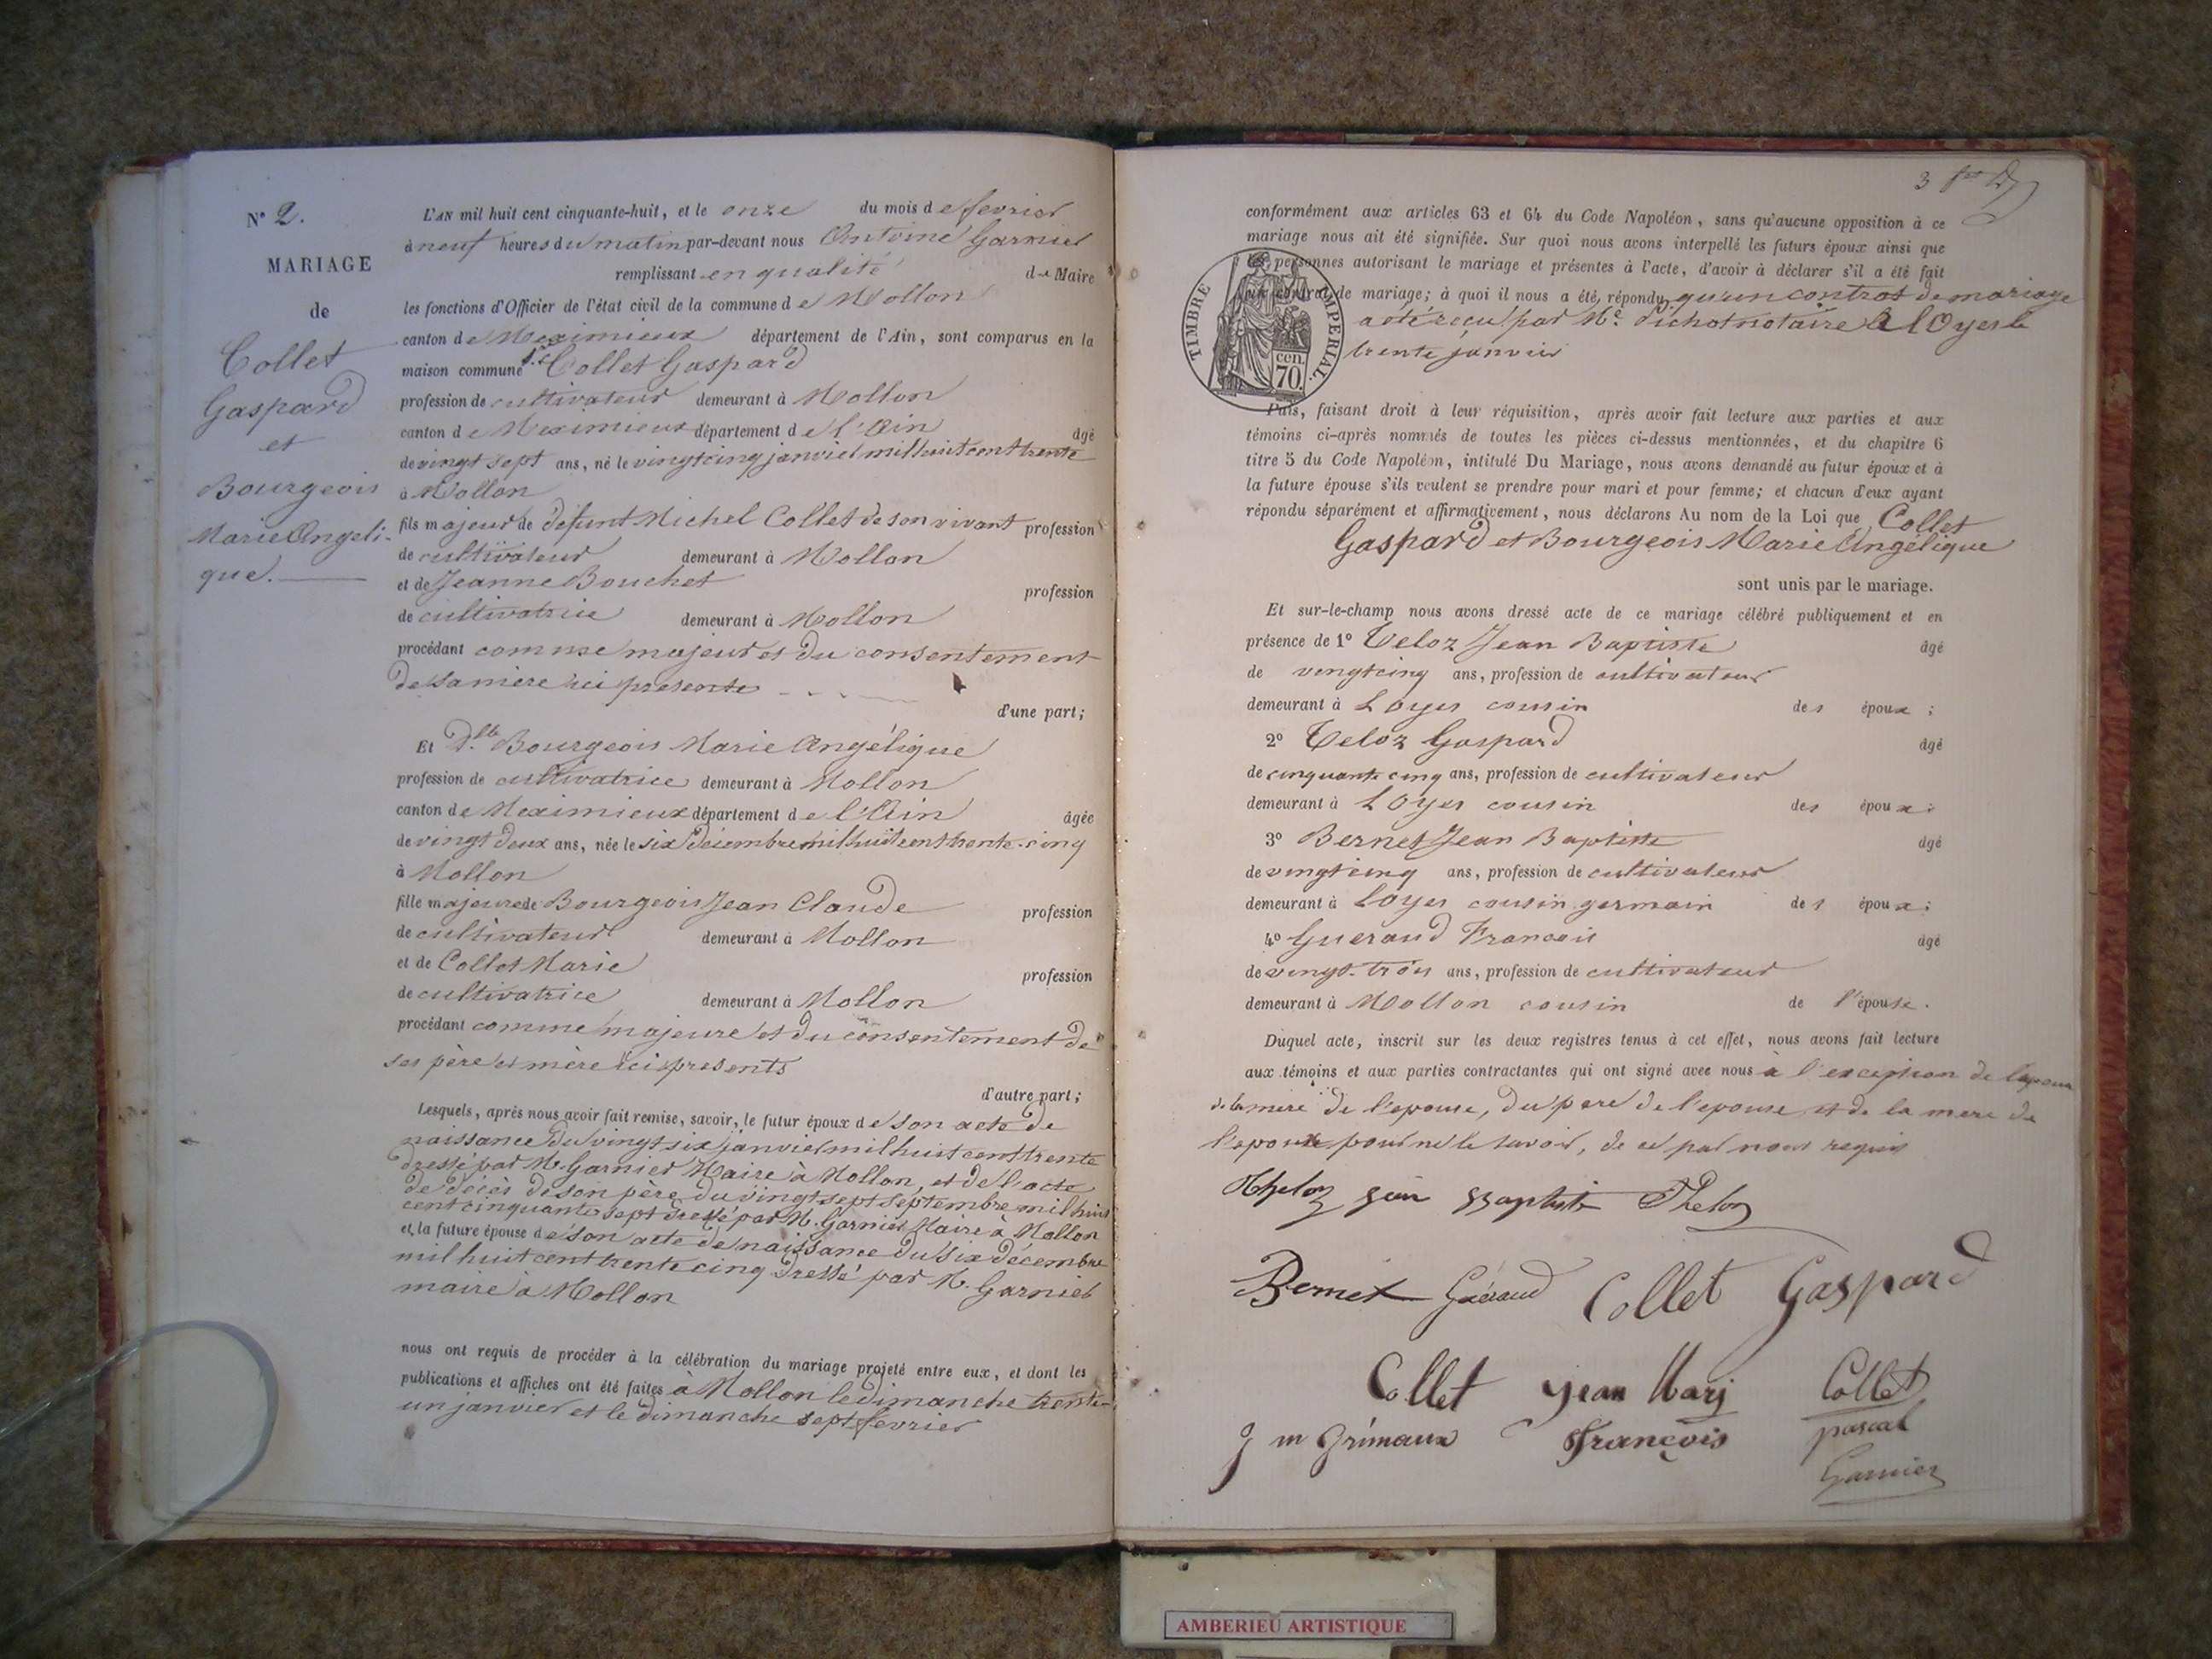 N° 2.
MARIAGE
de
Collet
Gaspard
et
Bourgeois
Marie Angeli-
que.
L'AN mil huit cent cinquante-huit, et le onze du mois de fevrier
à neuf heures du matin par-devant nous Antoine Garnier
remplissant en qualité de Maire
les fonctions d'Officier de l'état civil de la commune de Mollon
canton de Meximieux département de l'Ain, sont comparus en la
maison commune Sr Collet Gaspard
profession de cultivateur demeurant à Mollon
canton de Meximieux département de l'Ain âgé
de vingt sept ans, né le vingt cinq janvier mil huit cent trente
à Mollon
fils majeur de défunt Michel Collet de son vivant profession
de cultivateur demeurant à Mollon
et de Jeanne Bouchet profession
de cultivatrice demeurant à Mollon
procédant comme majeur et du consentement
de sa mère ici presente
d'une part;
Et Dlle Bourgeois Marie Angélique
profession de cultivatrice demeurant à Mollon
canton de Meximieux département de l'Ain âgée
de vingt deux ans, née le six décembre mil huit cent trente-cinq
à Mollon
fille majeure de Bourgeois Jean Claude profession
de cultivateur demeurant à Mollon
et de Collet Marie profession
de cultivatrice demeurant à Mollon
procédant comme majeure et du consentement de
ses père et mère ici presents
d'autre part;
Lesquels, après nous avoir fait remise, savoir, le futur époux de son acte de
naissance du vingt six janvier mil huit cent trente
dressé par M. Garnier Maire à Mollon, et de l'acte
de décès de son père du vingt sept septembre mil huit
cent cinquante sept dressé par M. Garnier Maire à Mollon
et la future épouse de son acte de naissance du six décembre
mil huit cent trente cinq dressé par M. Garnier
maire à Mollon
nous ont requis de procéder à la célébration du mariage projeté entre eux, et dont les
publications et affiches ont été faites à Mollon le dimanche trente-
un janvier et le dimanche sept fevrier
3
conformément aux articles 63 et 64 du Code Napoléon, sans qu'aucune opposition à ce
mariage nous ait été signifiée. Sur quoi nous avons interpellé les futurs époux ainsi que
les personnes autorisant le mariage et présentes à l'acte, d'avoir à déclarer s'il a été fait
un contrat de mariage; à quoi il nous a été répondu qu'un contrat de mariage
a été reçu par Me. Pichot notaire à Loyes le
trente janvier
TIMBRE IMPERIAL.
70. cen.
Puis, faisant droit à leur réquisition, après avoir fait lecture aux parties et aux
témoins ci-après nommés de toutes les pièces ci-dessus mentionnées, et du chapitre 6
titre 5 du Code Napoléon, intitulé Du Mariage, nous avons demandé au futur époux et à
la future épouse s'ils veulent se prendre pour mari et pour femme; et chacun d'eux ayant
répondu séparément et affirmativement, nous déclarons Au nom de la Loi que Collet
Gaspard et Bourgeois Marie Angélique
sont unis par le mariage.
Et sur-le-champ nous avons dressé acte de ce mariage célébré publiquement et en
présence de 1° Teloz Jean Baptiste âgé
de vingt cinq ans, profession de cultivateur
demeurant à Loyes cousin des époux;
2° Teloz Gaspard âgé
de cinquante cinq ans, profession de cultivateur
demeurant à Loyes cousin des époux;
3° Bernet Jean Baptiste âgé
de vingt cinq ans, profession de cultivateur
demeurant à Loyes cousin germain des époux;
4° Gueraud Francois âgé
de vingt-trois ans, profession de cultivateur
demeurant à Mollon cousin de l'épouse.
Duquel acte, inscrit sur les deux registres tenus à cet effet, nous avons fait lecture
aux témoins et aux parties contractantes qui ont signé avec nous à l'exception de l'epouse
de la mere de l'epouse, du pere de l'epouse et de la mere de
l'epoux pour ne le savoir, de ce par nous requis
Theloz jean Baptiste Theloz
Bernet Guéraud Collet Gaspard
Collet jean Mari Collet
j m Grimaux François pascal
Garnier
AMBERIEU ARTISTIQUE